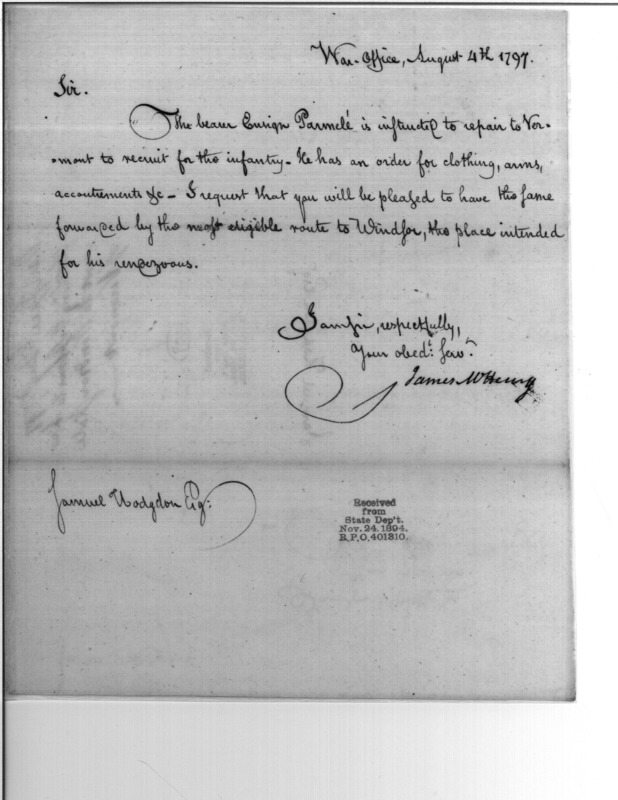 War-Office, August 4th 1797.
Sir.
The bearer Ensign Parmelé is instructed to repair to Ver-
-mont to recruit for the infantry- He has an order for clothing, arms,
accoutrements &c - I request that you will be pleased to have the same
forwarded by the most eligible route to Windsor, the place intended
for his rendezvous.
I am sir, respectfully,
Your obedt: servt:
James McHenry
Samuel Hodgdon Esq:
Received
from
State Dep't.
Nov. 24. 1894.
R.P.O. 401310.